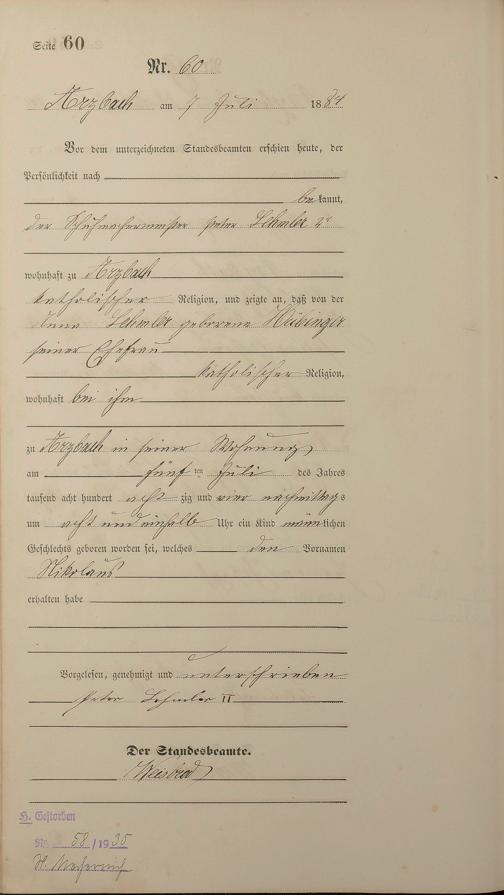 Seite 60
Nr. 60
Arzbach am 7 Juli 1884
Vor dem unterzeichneten Standesbeamten erschien heute, der
Persönlichkeit nach
bekannt,
der Schuhmachermeister Peter Lehmler 2r
wohnhaft zu Arzbach
katholischer Religion, und zeigte an, daß von der
Anna Lehmler geborene
seiner Ehefrau
katholischer Religion,
wohnhaft bei ihm
zu Arzbach in seiner Wohnung
am fünf ten Juli des Jahres
tausend acht hundert acht zig und vier nachmittags
um acht und einhalb Uhr ein Kind männlichen
Geschlechts geboren worden sei, welches den Vornamen
Nikolaus
erhalten habe
Vorgelesen, genehmigt und unterschrieben
Peter Lehmler II
Der Standesbeamte.
Weisbrod
H. Gestorben
Nr. 58/1935
St.